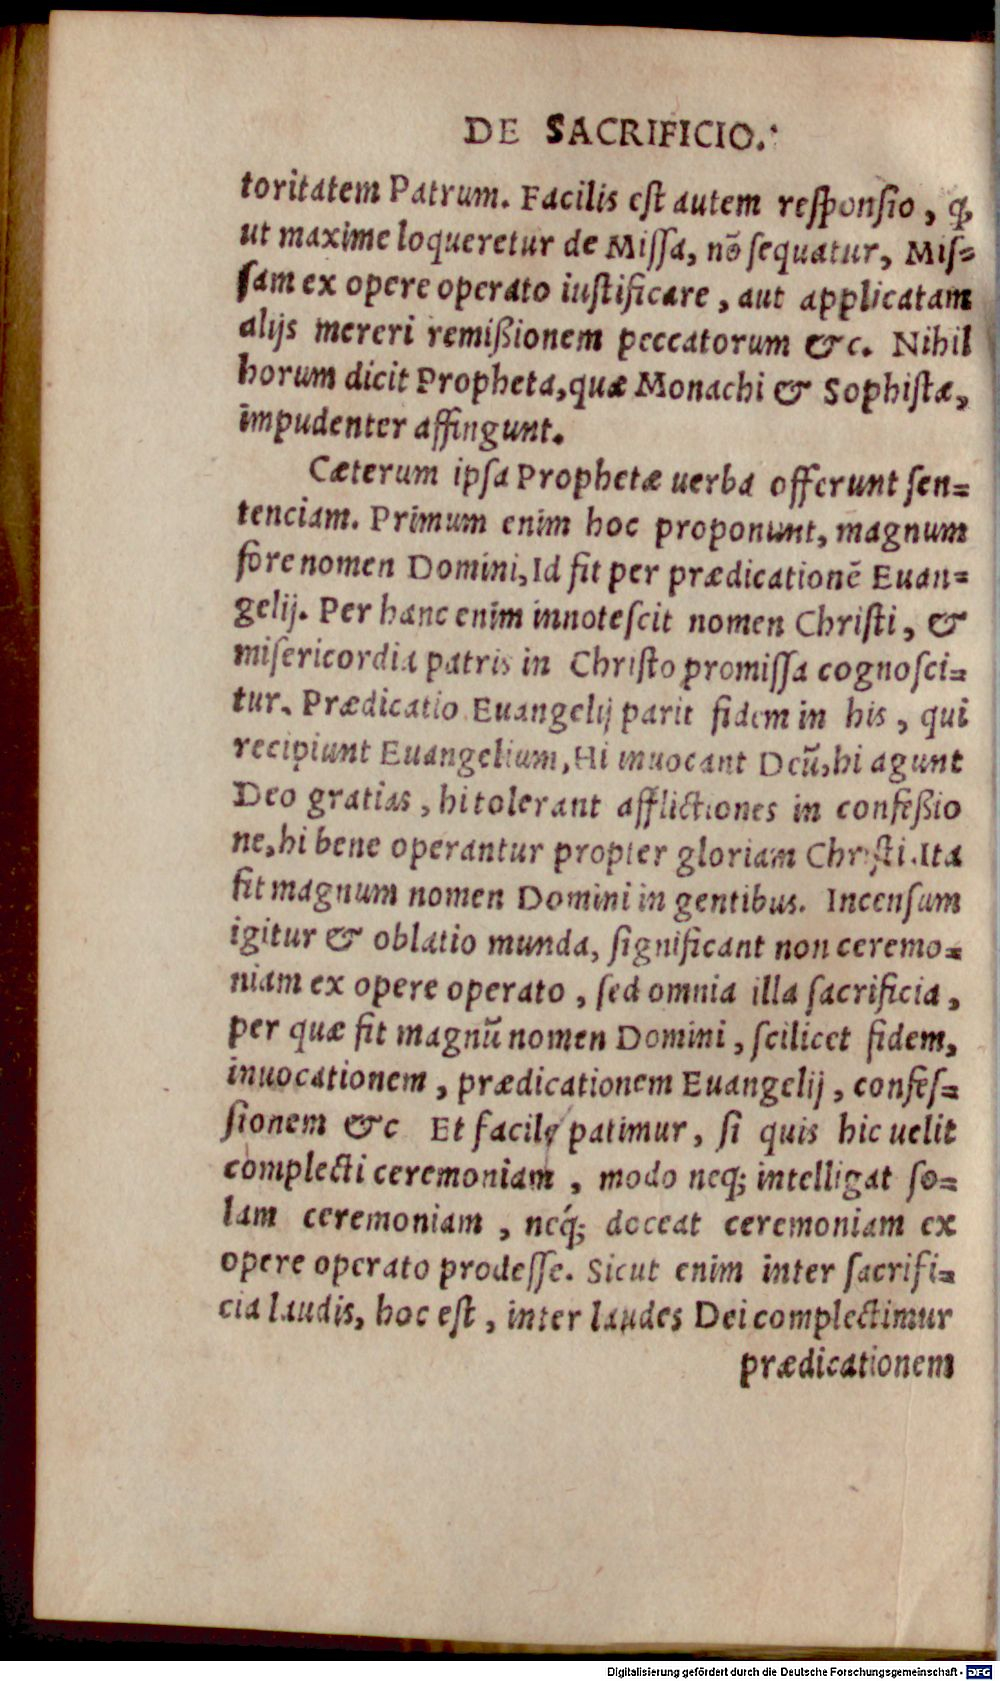 DE SACRIFICIO.
toritatem Patrum. Facilis eſt autem reſponſio, ꝙ
ut maxime loqueretur de Miſſa, nō ſequatur, Miſ=
ſam ex opere operato iuſtificare, aut applicatam
alijs mereri remißionem peccatorum &c. Nihil
horum dicit Propheta, quæ Monachi & Sophiſtæ,
impudenter affingunt.
Cæterum ipſa Prophetæ uerba offerunt ſen=
tenciam. Primum enim hoc proponunt, magnum
fore nomen Domini, Id fit per prædicationē Euan=
gelij. Per hanc enim innoteſcit nomen Chriſti, &
miſericordia patris in Chriſto promiſſa cognoſci=
tur. Prædicatio Euangelij parit fidem in his, qui
recipiunt Euangelium, Hi inuocant Deū, hi agunt
Deo gratias, hi tolerant afflictiones in confeßio
ne, hi bene operantur propter gloriam Chriſti. Ita
fit magnum nomen Domini in gentibus. Incenſum
igitur & oblatio munda, ſignificant non ceremo=
niam ex opere operato, ſed omnia illa ſacrificia,
per quæ fit magnū nomen Domini, ſcilicet fidem,
inuocationem, prædicationem Euangelij, confeſ=
ſionem &c Et facile patimur, ſi quis hic uelit
complecti ceremoniam, modo neq; intelligat ſo=
lam ceremoniam, neq́; doceat ceremoniam ex
opere operato prodeſſe. Sicut enim inter ſacrifi=
cia laudis, hoc eſt, inter laudes Dei complectimur
prædicationem
Digitalisierung gefördert durch die Deutsche Forschungsgemeinschaft - DFG